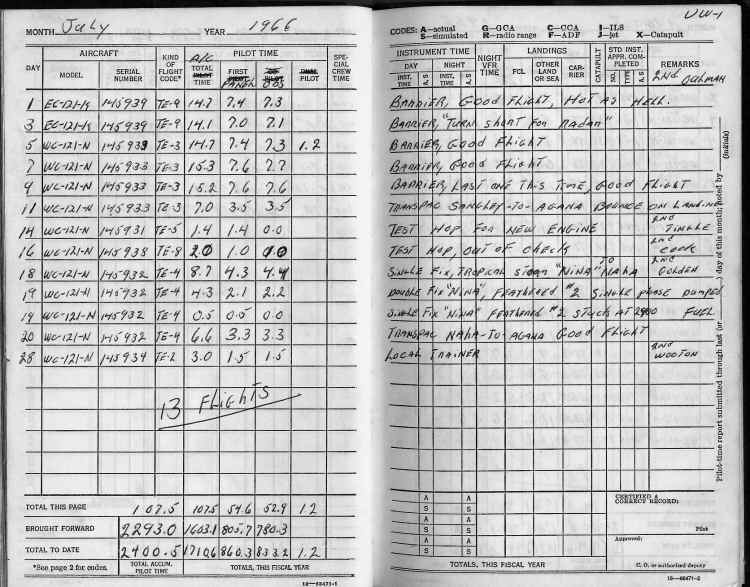 MONTH July YEAR 1966
AIRCRAFT KIND OF FLIGHT CODE* A/C PILOT TIME SPECIAL CREW TIME
DAY MODEL SERIAL NUMBER TOTAL PILOT TIME FIRST PILOT PANEL CO PILOT OBS DUAL PILOT
1 EC-121-K 145939 TE-9 14.7 7.4 7.3
3 EC-121-K 145939 TE-9 14.1 7.0 7.1
5 WC-121-N 145933 TE-3 14.7 7.4 7.3 1.2
7 WC-121-N 145933 TE-3 15.3 7.6 7.7
9 WC-121-N 145933 TE-3 15.2 7.6 7.6
11 WC-121-N 145933 TE-3 7.0 3.5 3.5
14 WC-121-N 145931 TE-5 1.4 1.4 0.0
16 WC-121-N 145938 TE-8 2.0 1.0 1.0
18 WC-121-N 145932 TE-4 8.7 4.3 4.4
19 WC-121-N 145932 TE-4 4.3 2.1 2.2
19 WC-121-N 145932 TE-4 0.5 0.5 0.0
20 WC-121-N 145932 TE-4 6.6 3.3 3.3
28 WC-121-N 145934 TE-2 3.0 1.5 1.5
13 FLIGHTS
TOTAL THIS PAGE 107.5 107.5 54.6 52.9 1.2
BROUGHT FORWARD 2293.0 1603.1 805.7 780.3
TOTAL TO DATE 2400.5 1710.6 860.3 833.2 1.2
*See page 2 for codes. TOTAL ACCUM. PILOT TIME TOTALS, THIS FISCAL YEAR
16—68471-1
VW-1
CODES: A—actual G—GCA C—CCA I—ILS
S—simulated R—radio range F—ADF J—jet X—Catapult
INSTRUMENT TIME NIGHT VFR TIME LANDINGS CATAPULT STD INST. APPR. COMPLETED REMARKS
DAY NIGHT FCL OTHER LAND OR SEA CARRIER NO. TYPE A, S 2ND
INST. TIME A, S INST. TIME A, S
BARRIER, GOOD FLIGHT, HOT AS HELL.
BARRIER, "TURN SHORT FOR RADAR"
BARRIER, GOOD FLIGHT
BARRIER, GOOD FLIGHT
BARRIER, LAST ONE THIS TIME, GOOD FLIGHT
TRANSPAC SANGLEY-TO-AGANA BOUNCE ON LANDING
TEST HOP FOR NEW ENGINE 2ND TINGLE
TEST HOP, OUT OF CHECK 2ND COOK
SINGLE FIX, TROPICAL STORM "NINA" TO NAHA 2ND GOLDEN
DOUBLE FIX "NINA", FEATHERED #2 SINGLE PHASE DUMPED
SINGLE FIX "NINA" FEATHERED #2 STUCK AT 2900 FUEL
TRANSPAC NAHA-TO-AGANA GOOD FLIGHT
LOCAL TRAINER 2ND WOOTON
A A CERTIFIED A CORRECT RECORD:
S S
A A
S S Pilot
A A Approved:
S S
TOTALS, THIS FISCAL YEAR C. O. or authorized deputy
16—68471-2
Pilot-time report submitted through last (or day of this month; noted by (Initials)